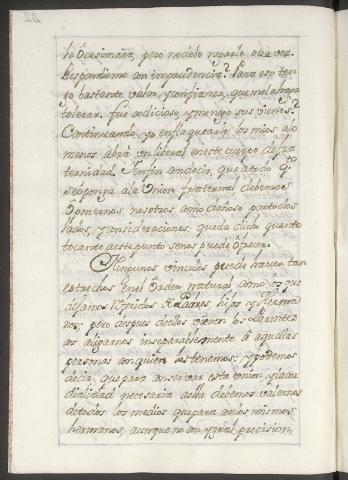 le ôcasionàra, pero no debo negarle otra vez.
Respondiome con imprudencia? Para eso ten-
go bastante valor, y confianza, que me la haga
tolerar. fue codicioso, y me nego sus vienes?
Continuando yo en flaquearle los mios, alo
menos abrà un liberal en este cuerpo de fra-
ternidad. Y enfin condecir, que atodo qto
se oponga ala Union fraternal debemos
ôponernos nosotros, como dichoso por todos
lados, y consideraciones; queda dicho quanto
tocante aeste punto senos puede ôfrecer.
Ningunos vinculos puede haver tan
estrechos en el ôrden natural, como los que
de Padres, hijos, y Herma-
nos; pero despues de ellos vienen los Parentez-
cos aligarnos inseparablemente à aquellas
personas con quien las tenemos; y podemos
decir, que para conservar esta union, y cor-
dialidad necesaria aella debemos valernos
de todos los medios que para con los mismos
hermanos, aunque no con ygual precision,